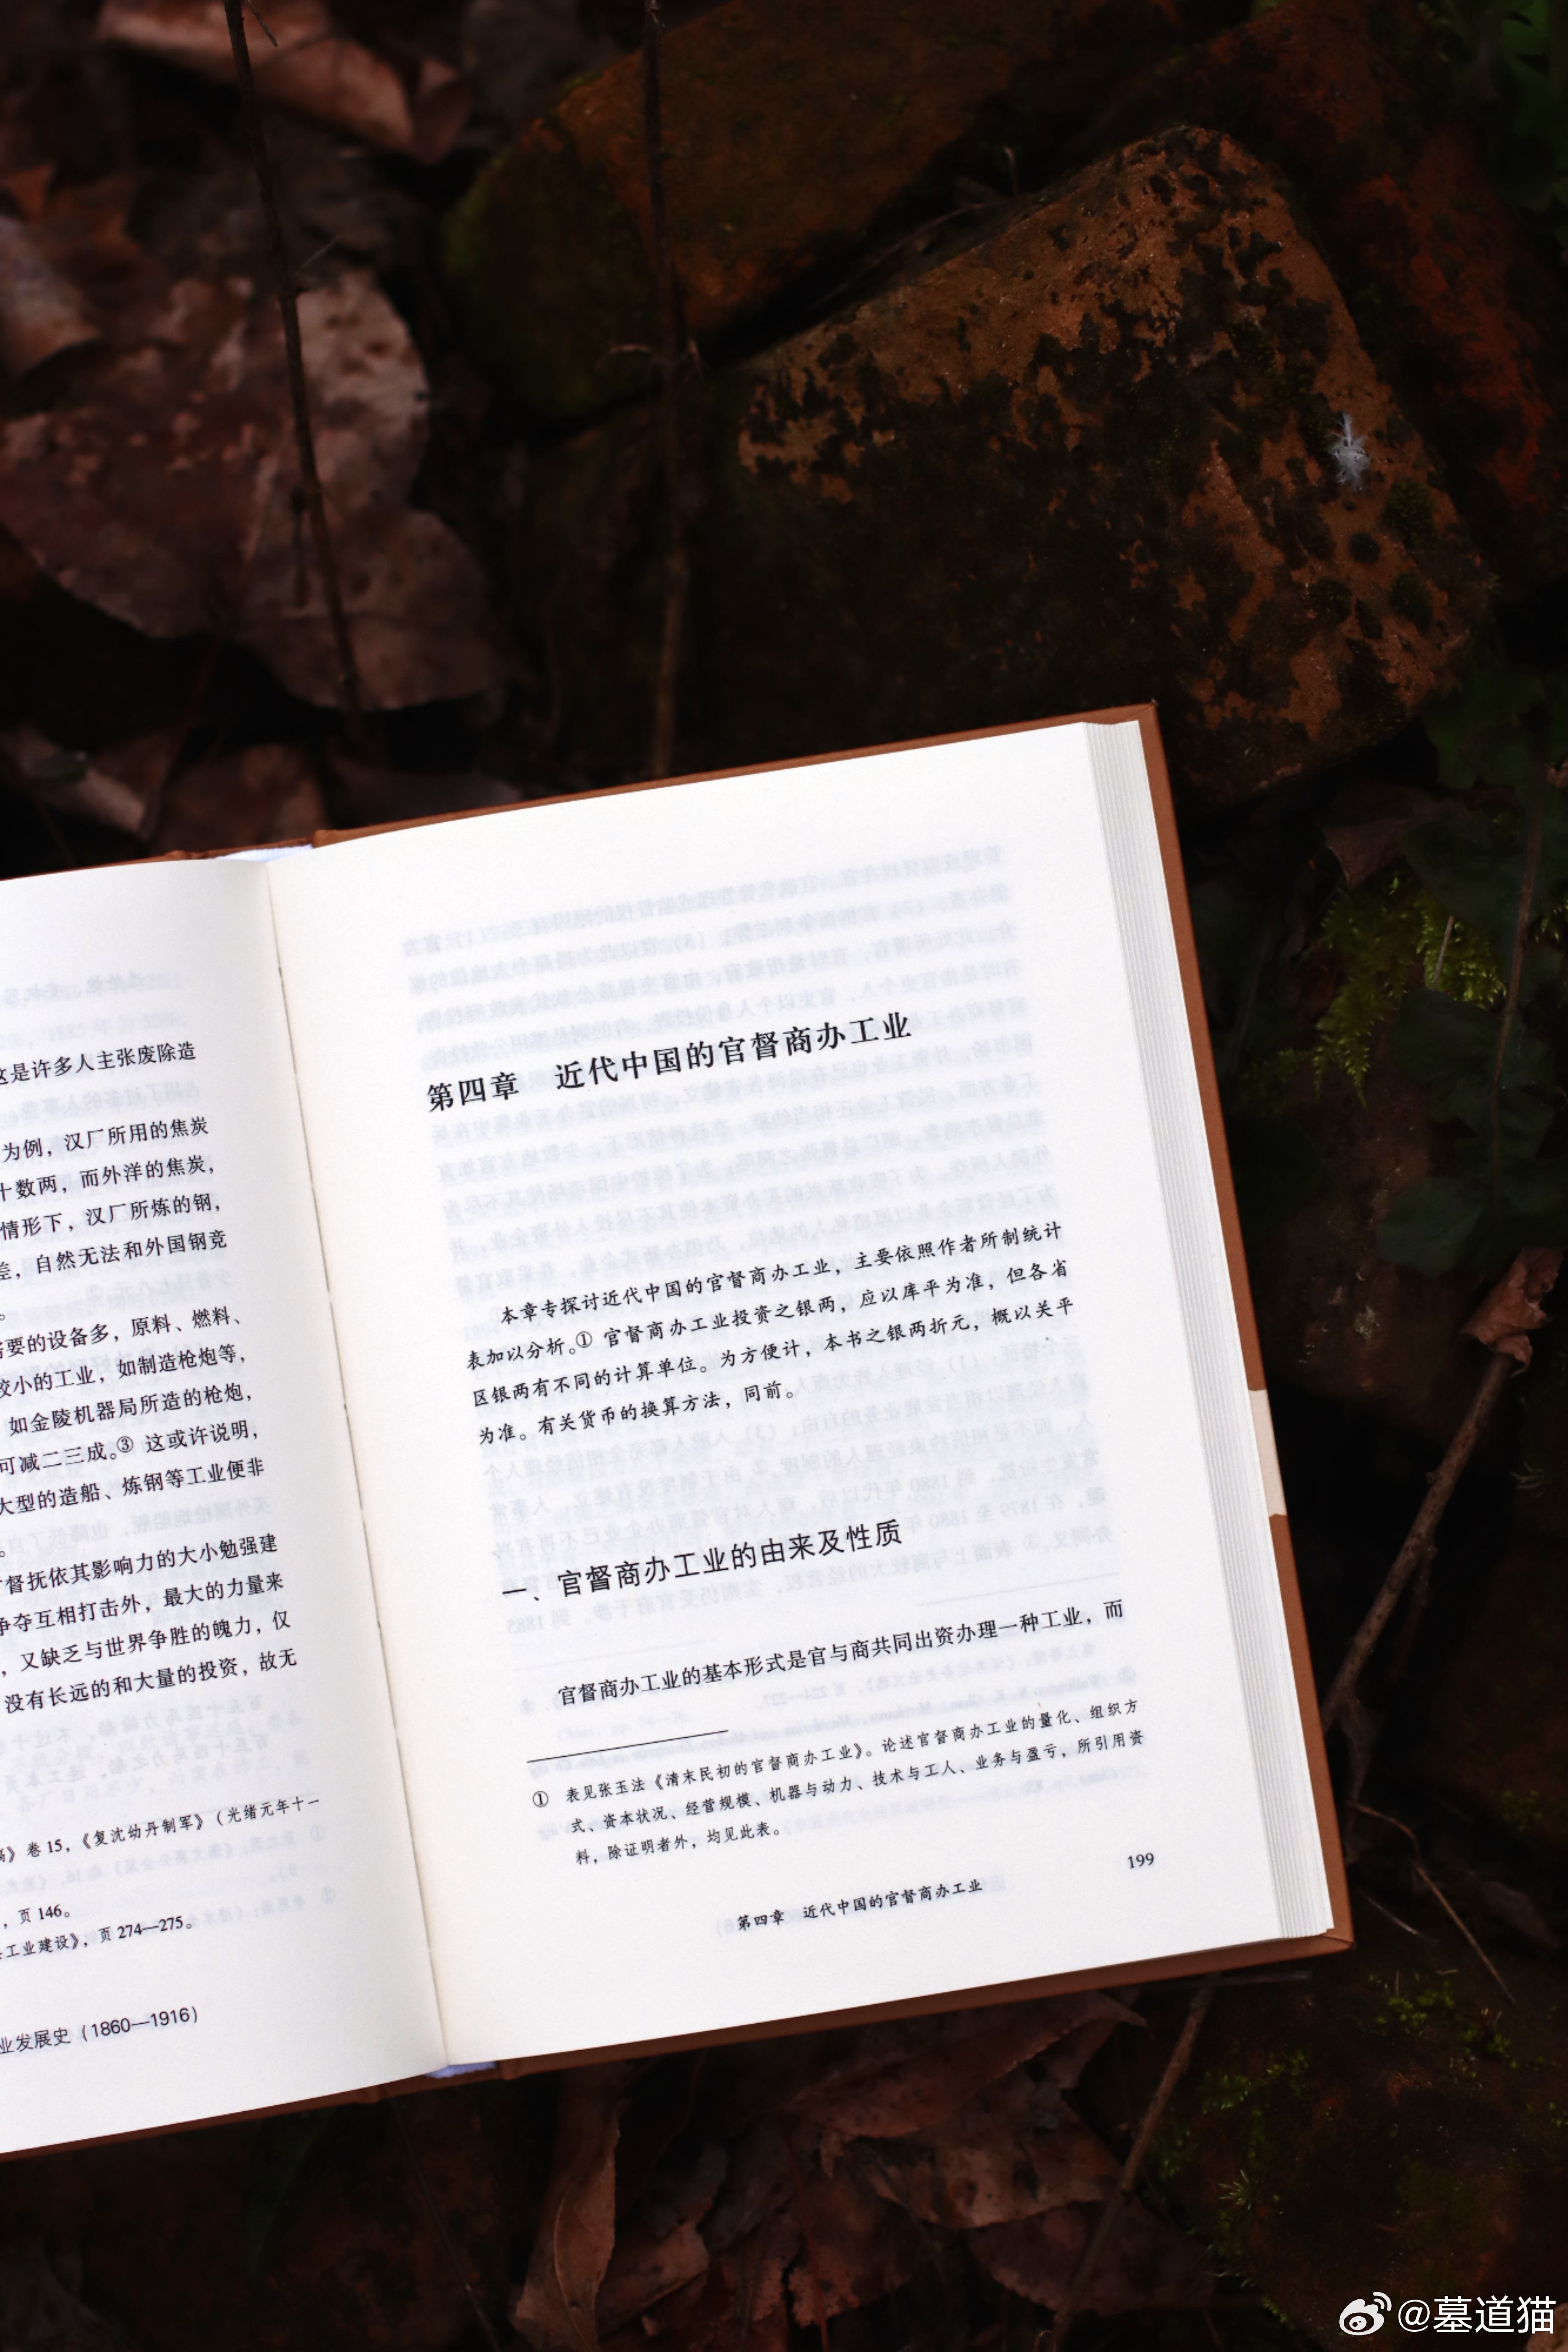 这是许多人主张废除造
为例，汉厂所用的焦炭
十数两，而外洋的焦炭，
情形下，汉厂所炼的钢，
差，自然无法和外国钢竞
。
需要的设备多，原料、燃料、
较小的工业，如制造枪炮等，
如金陵机器局所造的枪炮，
可减二三成。③ 这或许说明，
大型的造船、炼钢等工业便非
。
督抚依其影响力的大小勉强建
争夺互相打击外，最大的力量来
，又缺乏与世界争胜的魄力，仅
没有长远的和大量的投资，故无
》卷 15，《复沈幼丹制军》（光绪元年十一
，页 146。
工业建设》，页 274—275。
业发展史（1860—1916）
第四章 近代中国的官督商办工业
本章专探讨近代中国的官督商办工业，主要依照作者所制统计
表加以分析。① 官督商办工业投资之银两，应以库平为准，但各省
区银两有不同的计算单位。为方便计，本书之银两折元，概以关平
为准。有关货币的换算方法，同前。
一、官督商办工业的由来及性质
官督商办工业的基本形式是官与商共同出资办理一种工业，而
① 表见张玉法《清末民初的官督商办工业》。论述官督商办工业的量化、组织方
式、资本状况、经营规模、机器与动力、技术与工人、业务与盈亏，所引用资
料，除证明者外，均见此表。
第四章 近代中国的官督商办工业
199
@墓道猫